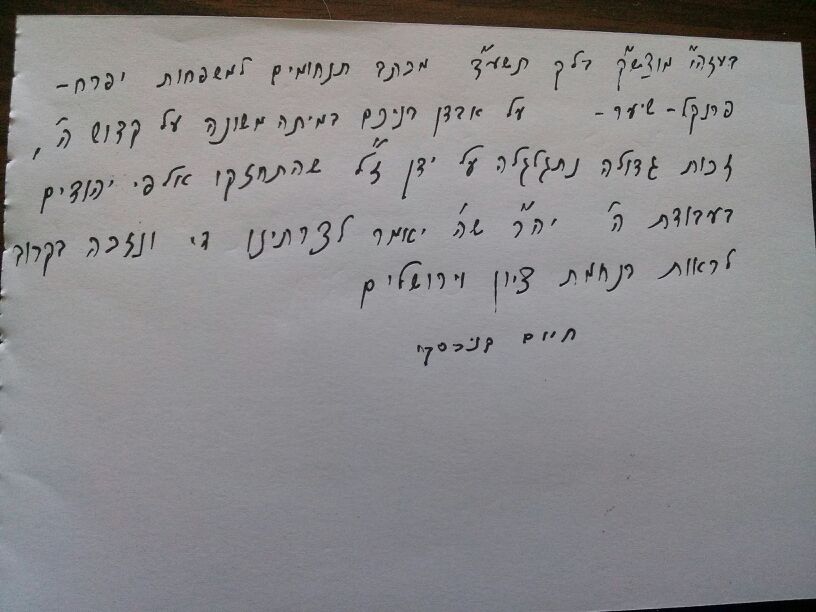 בעזהי״ מוצש״ק בלק תשע״ד מכתב תנחומים למשפחות יפרח-
פרנקל- שיער- על אבדן בניכם במיתה משונה על קדוש ה׳,
זכות גדולה נתגלגלה על ידן ז״ל שהתחזקו אלפי יהודים
בעבודת ה׳ יה״ר שה׳ יאמר לצרתינו די ונזכה בקרוב
לראות בנחמת ציון וירושלים
חיים קניבסקי